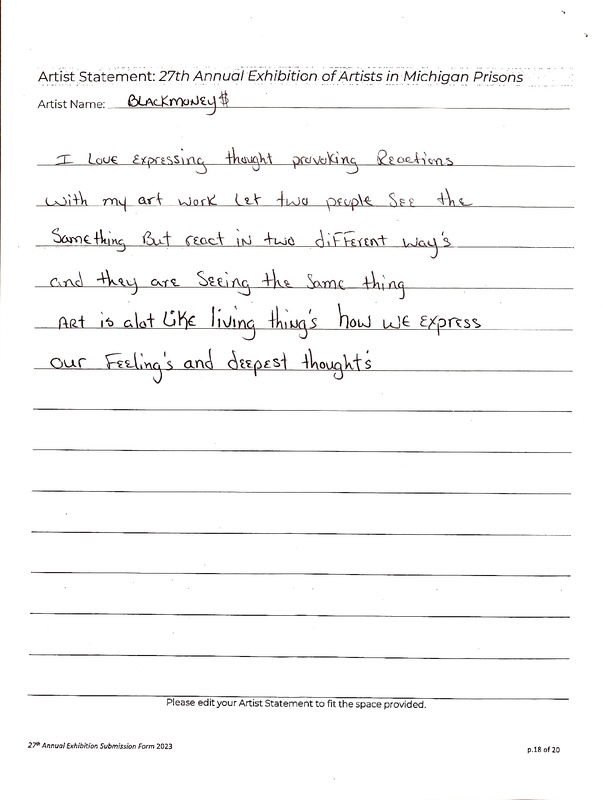 Artist Statement: 27th Annual Exhibition of Artists in Michigan Prisons
Artist Name: BLACKMONEY$
I Love Expressing thought provoking Reactions
with my art work Let two people See the
Samething But react in two different way's
and they are Seeing the Same thing
ART is alot LIKE living thing's how we express
our Feeling's and deepest thought's
Please edit your Artist Statement to fit the space provided.
27th Annual Exhibition Submission Form 2023
p.18 of 20